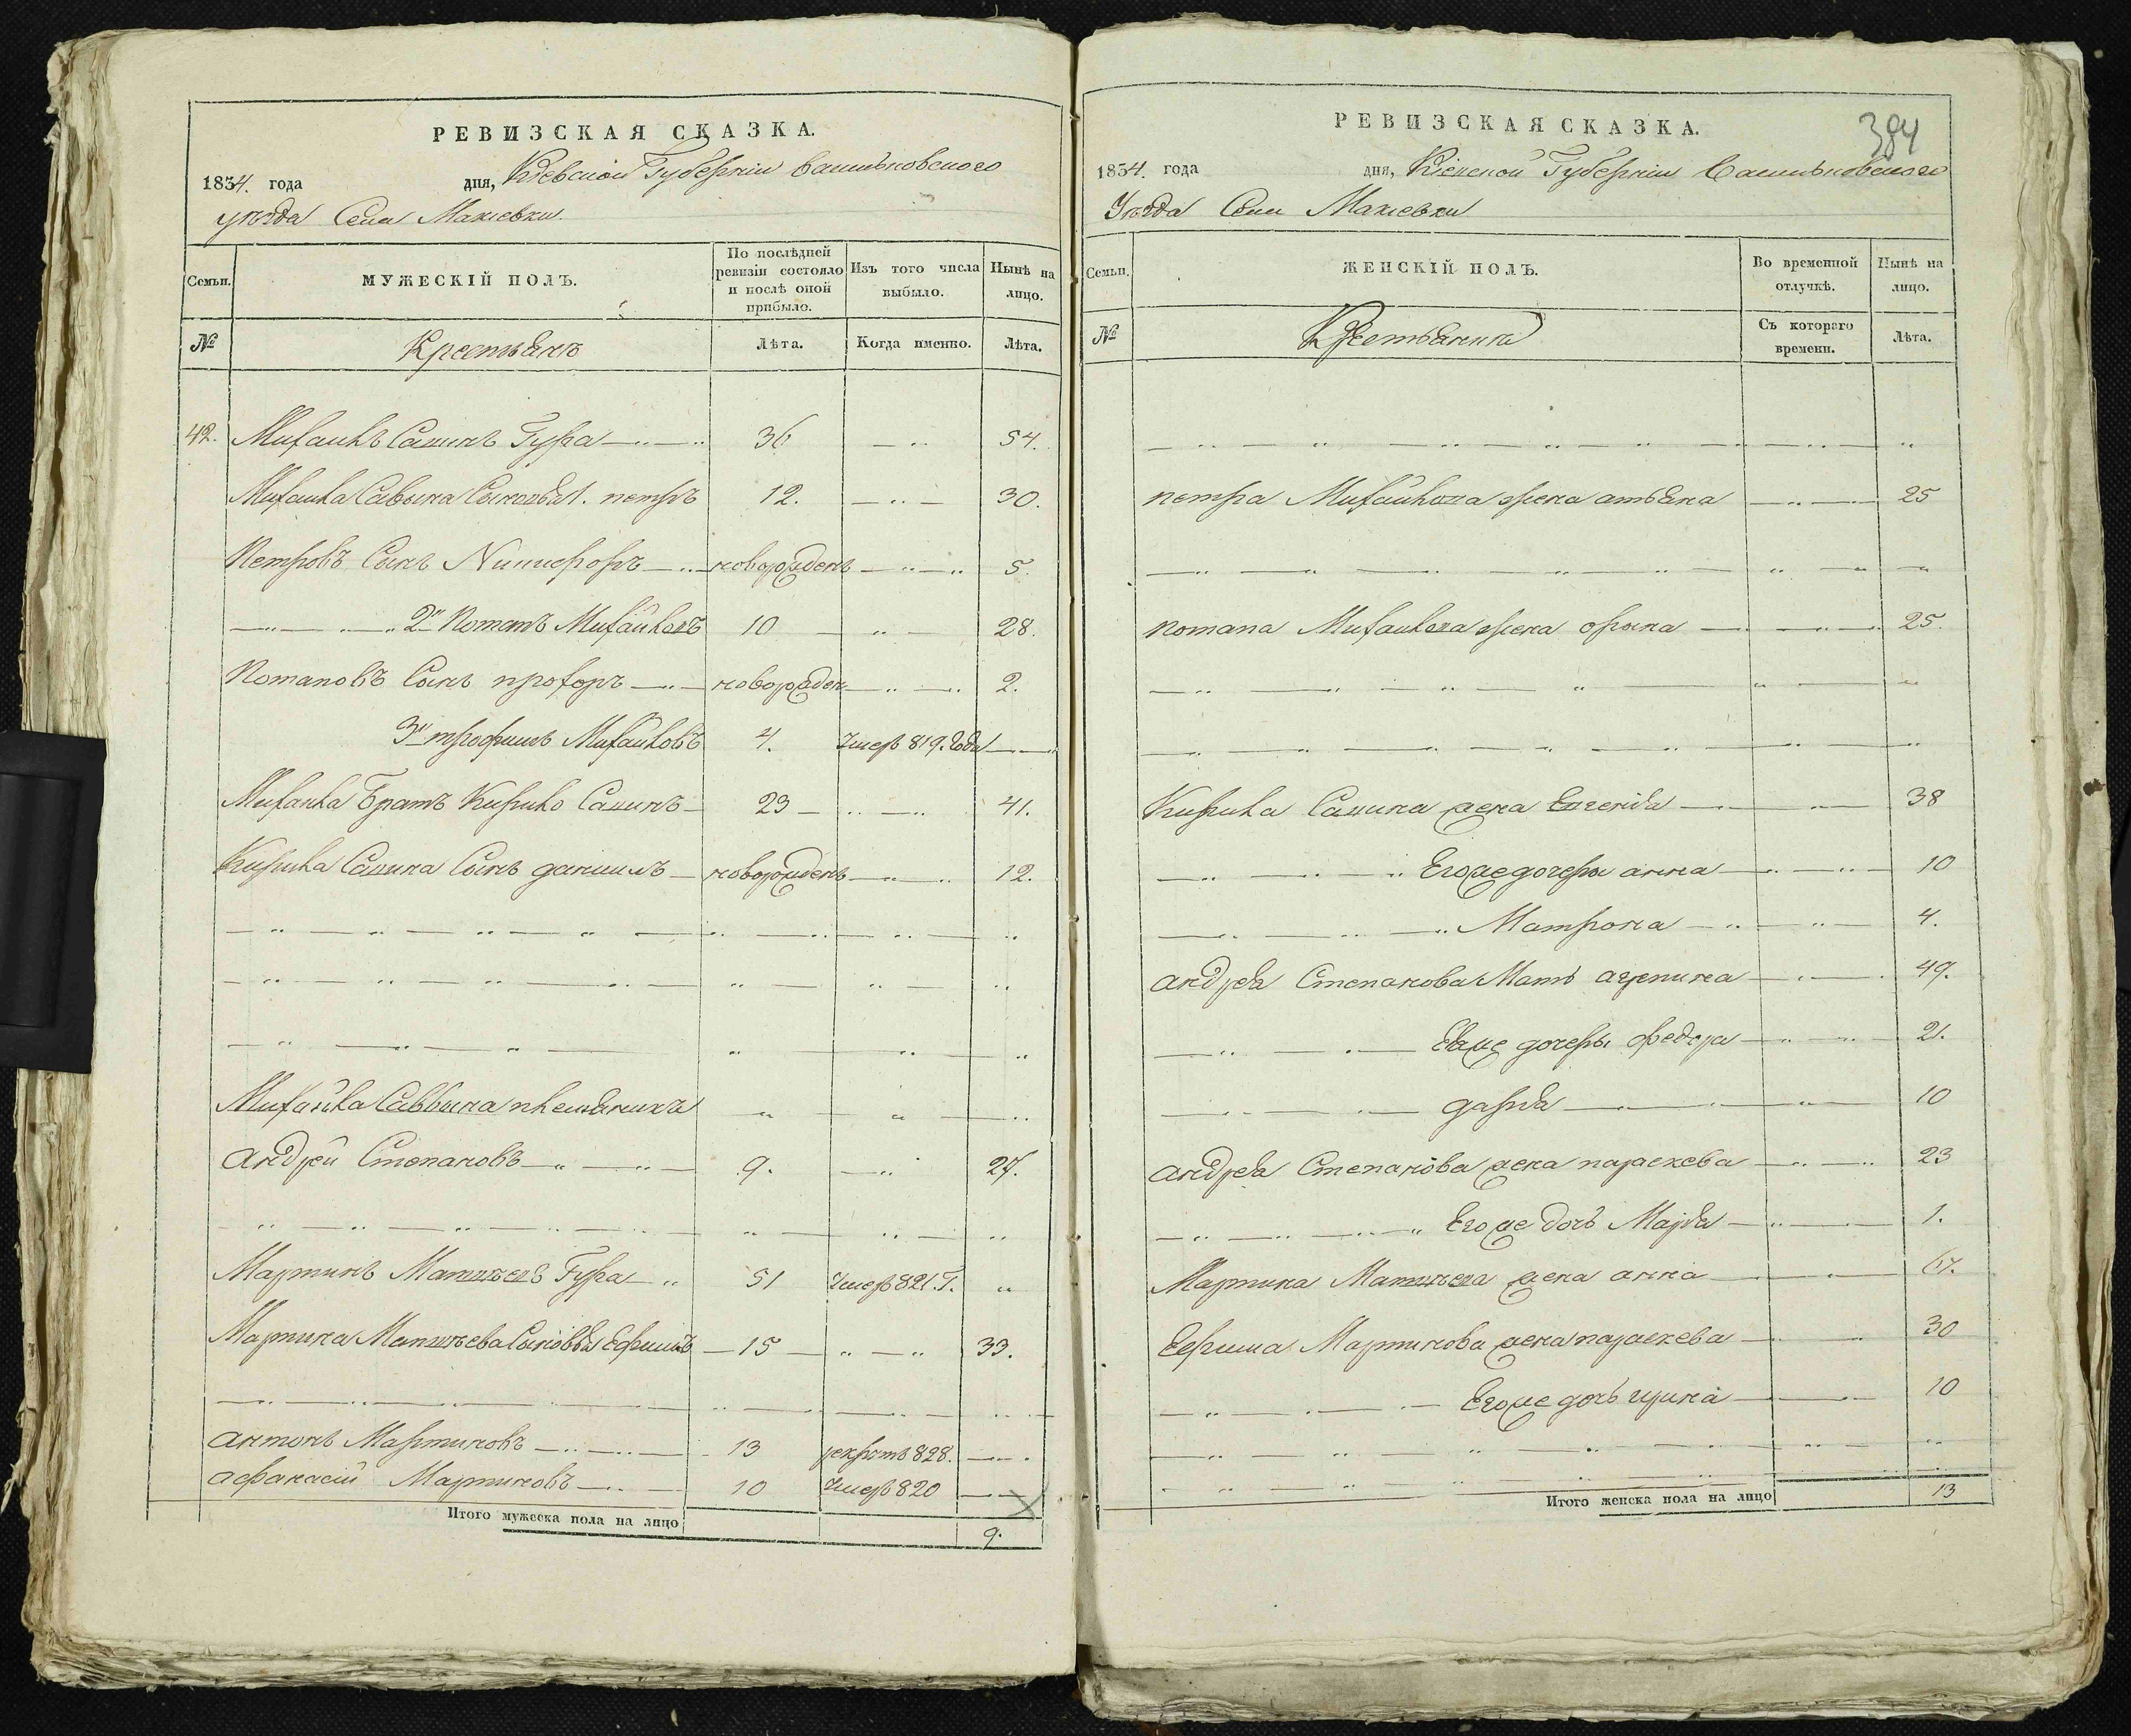 РЕВИЗСКАЯ СКАЗКА.
1834. года дня, Кіевской Губерніи Васильковскаго
уезда Села Макіевки.
Семьи. МУЖЕСКІЙ ПОЛЪ. По послѣдней ревизіи состояло и послѣ оной прибыло. Изъ того числа выбыло. Нынѣ на лицо.
№ Крестьянъ Лѣта. Когда именно. Лѣта.
42. Михаилъ Савинъ Гура 36 54.
Михаила Савына Сыновья 1. петръ 12. 30.
Петровъ Сынъ Никифоръ новорожденъ 5.
2й Потапъ Михайловъ 10 28.
Потаповъ Сынъ прохоръ новорожден 2.
3й трофимъ Михайловъ 4. Умеръ 819. Года
Михаила Братъ Кирило Савинъ 23 41.
Кирила Савина Сынъ даниилъ новорожденъ 12.
Михайла Саввына племяникъ
андрей Степановъ 9. 27.
Мартинъ Матвеевъ Гура 51 Умеръ 821. Г.
Мартина Матвеева Сыновья Ефимъ 15 33.
антонъ Мартиновъ 13 рекрутъ 828.
афанасій Мартиновъ 10 Умеръ 820
Итого мужеска пола на лицо 9.
РЕВИЗСКАЯ СКАЗКА. 384
1834. года дня, Кіевской Губерніи Васильковскаго
Уезда Села Макіевки
Семьи. ЖЕНСКІЙ ПОЛЪ. Во временной отлучкѣ. Нынѣ на лицо.
№ Крестьянки Съ котораго времени. Лѣта.
петра Михайлова жена атьяна 25
потапа Михаилова жена орына 25.
Кирила Савина жена Евгенія 38
Егоже дочеры анна 10
Матрона 4.
андрея Степанова Мать агрепина 49.
Еяже дочеры федора 21.
дарія 10
андрея Степанова жена параскева 23
Егоже дочь Марія 1.
Мартина Матвеева жена анна 67.
Ефима Мартинова жена параскева 30
Егоже дочь ирина 10
Итого женска пола на лицо 13